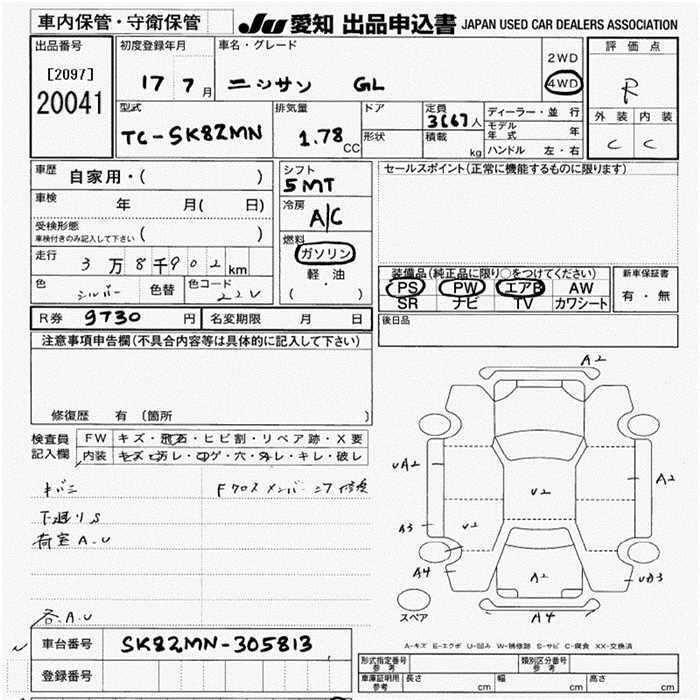 車内保管・守衛保管
JU 愛知 出品申込書 JAPAN USED CAR DEALERS ASSOCIATION
出品番号
[2097]
20041
初度登録年月
17 7月
車名・グレード
ニシサン GL
2WD
4WD
評価点
R
外装 内装
C C
型式
TC-SK82MN
排気量
1.78 CC
ドア
形状
定員
3(6)人
積載
kg
ディーラー・並行
モデル年式 年
ハンドル 左・右
車歴
自家用・( )
車検
年 月( 日)
受検形態
車検付きのみ記入して下さい ( )
走行
3万8千902km
色 シルバー 色替 色コード 22V
シフト
5MT
冷房
A/C
燃料
ガソリン
軽・油
( )
セールスポイント(正常に機能するものに限ります)
装備品(純正品に限り○をつけてください)
PS PW エアB AW
SR ナビ TV カワシート
新車保証書
有・無
後日品
R券 9730 円 名変期限 月 日
注意事項申告欄(不具合内容等は具体的に記入して下さい)
修復歴 有 〔箇所 〕
検査員記入欄
FW キズ・飛石・ヒビ割・リペア跡・X要
内装 キズ・ヨゴレ・コゲ・穴・スレ・キレ・破レ
キバミ
下廻りS
荷室A.U
各A.U
A2
UA2
A2
U2
A3
U2
A4
A2
UB3
A4
スペア
A-キズ E-エクボ U-凹み W-補修跡 S-サビ C-腐食 XX-交換済
車台番号 SK82MN-305813
登録番号
形式指定番号 参考
類別区分番号 参考
車庫証明用 参考 長さ cm 幅 cm 高さ cm